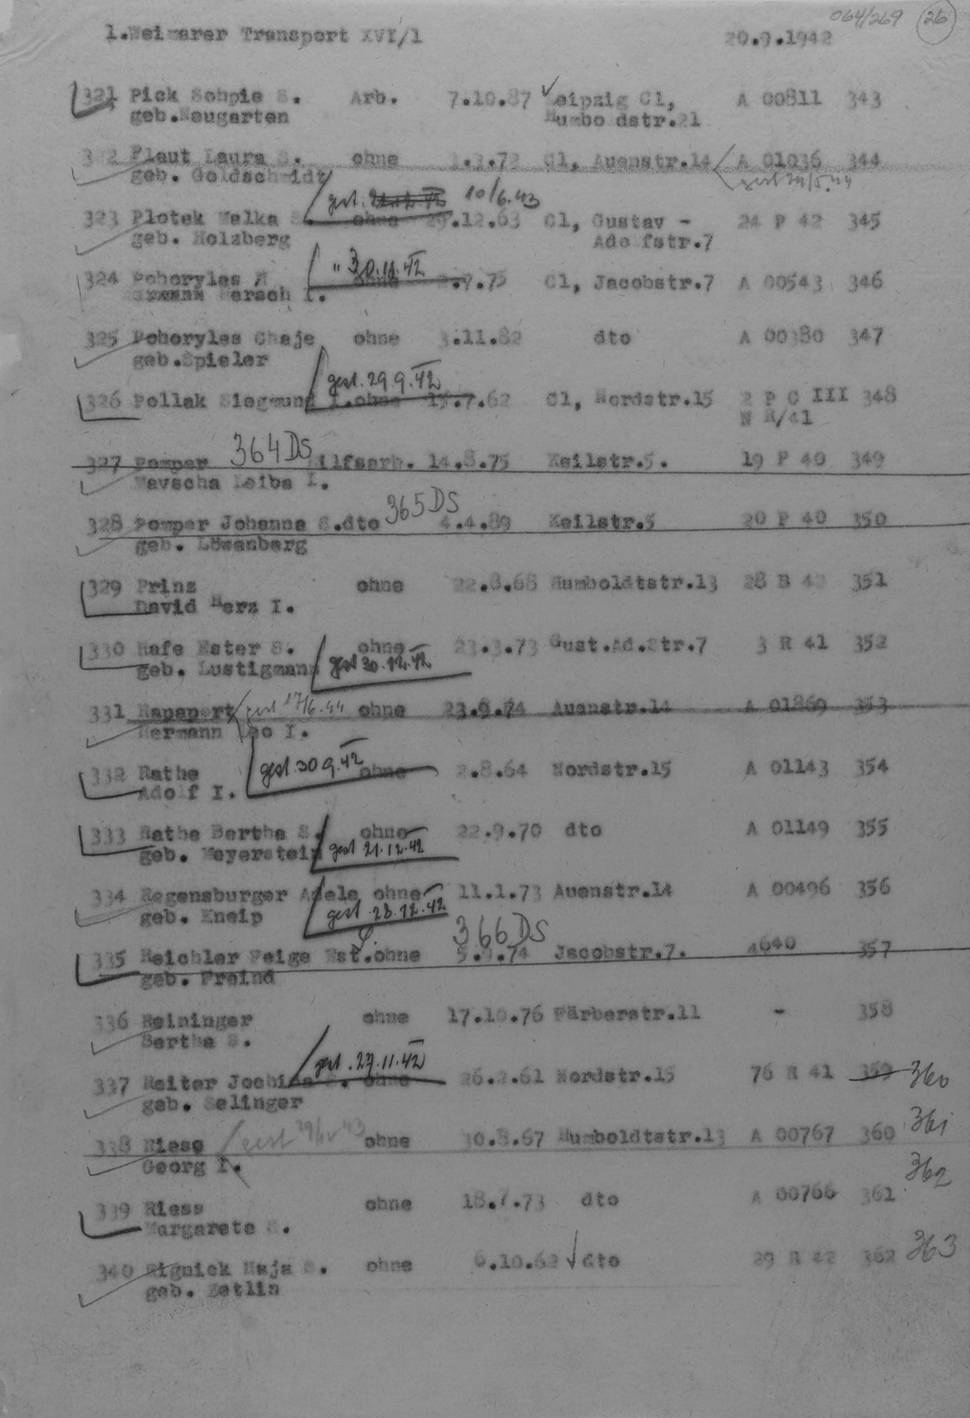 064/269 26
1.Weimarer Transport XVI/1 20.9.1942
321 Pick Sohpie S. Arb. 7.10.87 Leipzig C1, A 00811 343
geb.Neugarten Humboldstr.21
322 Plaut Laura S. ohne 3.72 C1, Auenstr.14 A 01036 344
geb. Goldschmidt gest
gest. 10/6.43
323 Plotek Malka S. ohne 29.12.63 C1, Gustav - 24 P 42 345
geb. Holzberg Adolfstr.7
" 30.11.42
324 Pohoryles ohne .7.75 C1, Jacobstr.7 A 00543 346
Hersch I.
325 Pohoryles Chaje ohne 3.11.82 dto A 00380 347
geb.Spieler
gest. 29.9.42
326 Pollak Siegmund I.ohne 15.7.62 C1, Nordstr.15 2 P C III 348
N R/41
327 Pomper 364 DS Hilfsarb. 14.8.75 Keilstr.5. 19 P 40 349
Mavscha Leibe I.
365 DS
328 Pomper Johanna S.dto 4.4.89 Keilstr.5 20 P 40 350
geb. Löwenberg
329 Prinz ohne 22.8.68 Humboldtstr.13 28 B 42 351
David Herz I.
330 Rafe Ester S. ohne 23.3.73 Gust.Ad.Str.7 3 R 41 352
geb. Lustigmann gest 30.12.42
331 Rapaport gest 17/6.44 ohne 23.9.74 Auenstr.14 A 01869 353
Hermann Leo I.
gest. 30.9.42
332 Rathe ohne 2.8.64 Nordstr.15 A 01143 354
Adolf I.
333 Rathe Bertha S. ohne 22.9.70 dto A 01149 355
geb. Meyerstein gest 21.12.42
334 Regensburger Adele ohne 11.1.73 Auenstr.14 A 00496 356
geb. Kneip gest. 28.12.42
366 DS
335 Reichler Feige Est.ohne 5.9.74 Jacobstr.7. 4640 357
geb. Freind
336 Reininger ohne 17.10.76 Färberstr.11 - 358
Bertha S.
gest. 27.11.42
337 Reiter Jochina S. ohne 26.2.61 Nordstr.15 76 R 41 359 360
geb. Selinger
338 Riese gest 43 ohne 30.8.67 Humboldtstr.13 A 00767 360 361
Georg I.
362
339 Riess ohne 18.7.73 dto A 00766 361
Margarete S.
340 Rignick Maja S. ohne 6.10.62 dto 29 R 42 362 363
geb. Zetlin